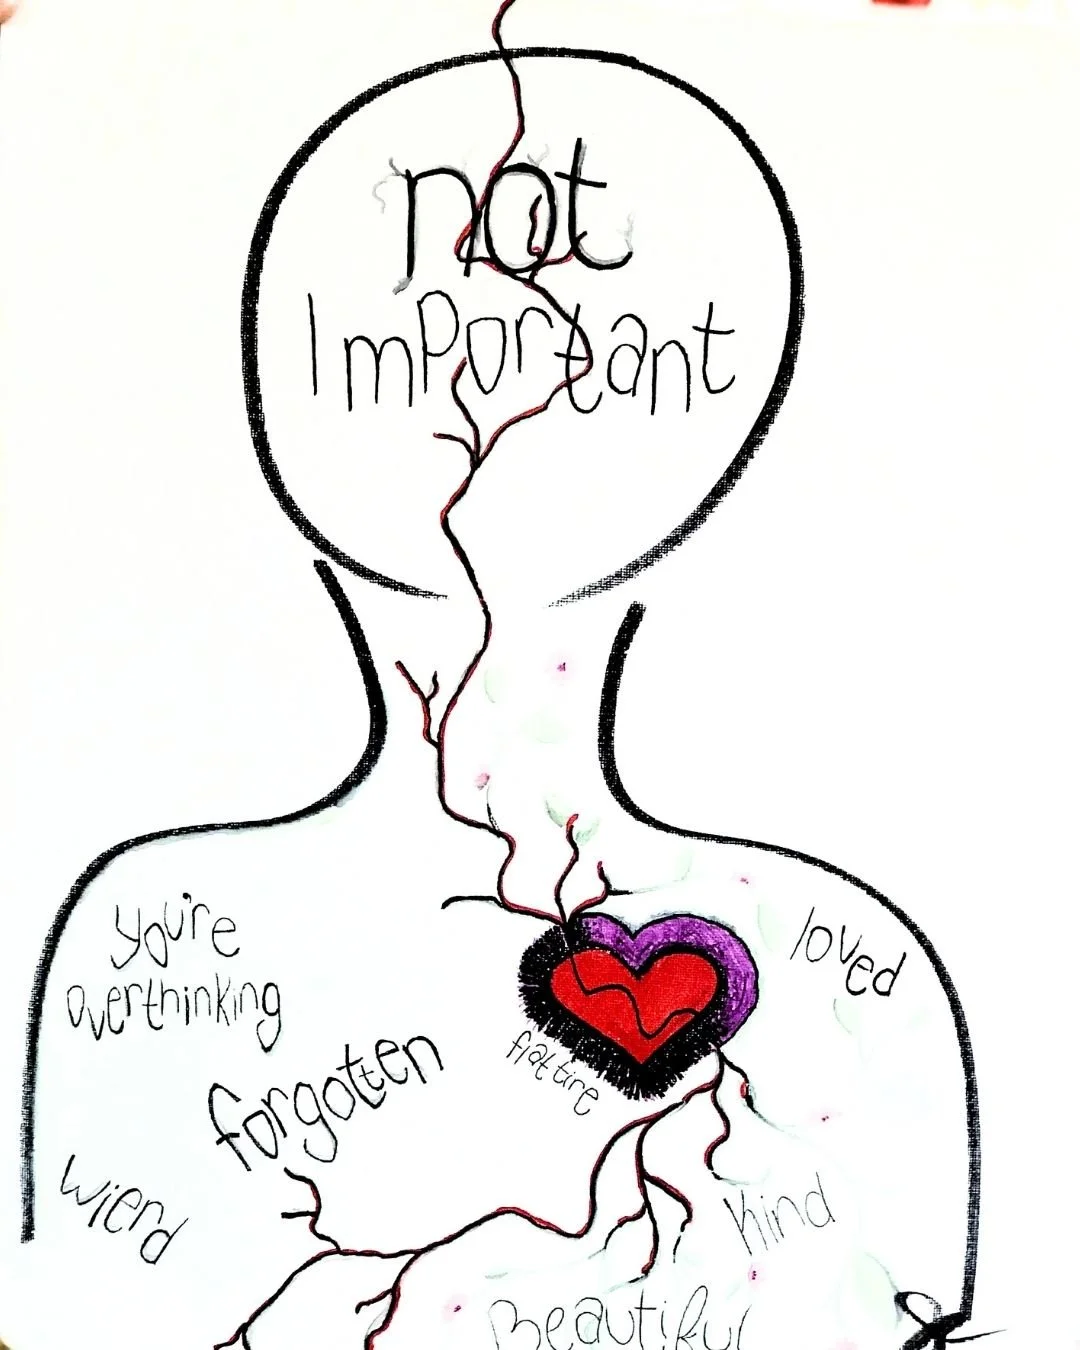 not
Important
you're
overthinking
loved
forgotten
flat tire
wierd
Kind
Beautiful